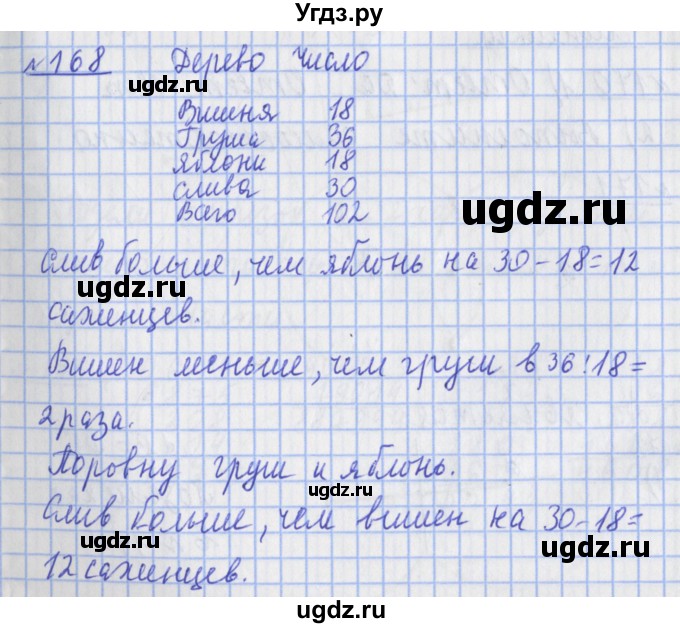 Угдз.ру
№168 Дерево Число
ugdz.ru
Вишня 18
Груша 36
яблони 18
слива 30
Всего 102
ugdz.ru
ugdz.ru
Слив больше, чем яблонь на 30-18=12
ugdz.ru
саженцев.
Вишен меньше, чем груш в 36:18=
2 раза.
ugdz.ru
Поровну груш и яблонь.
ugdz.ru
Слив больше, чем вишен на 30-18=
ugdz.ru
ugdz.ru
12 саженцев.
ugdz.ru